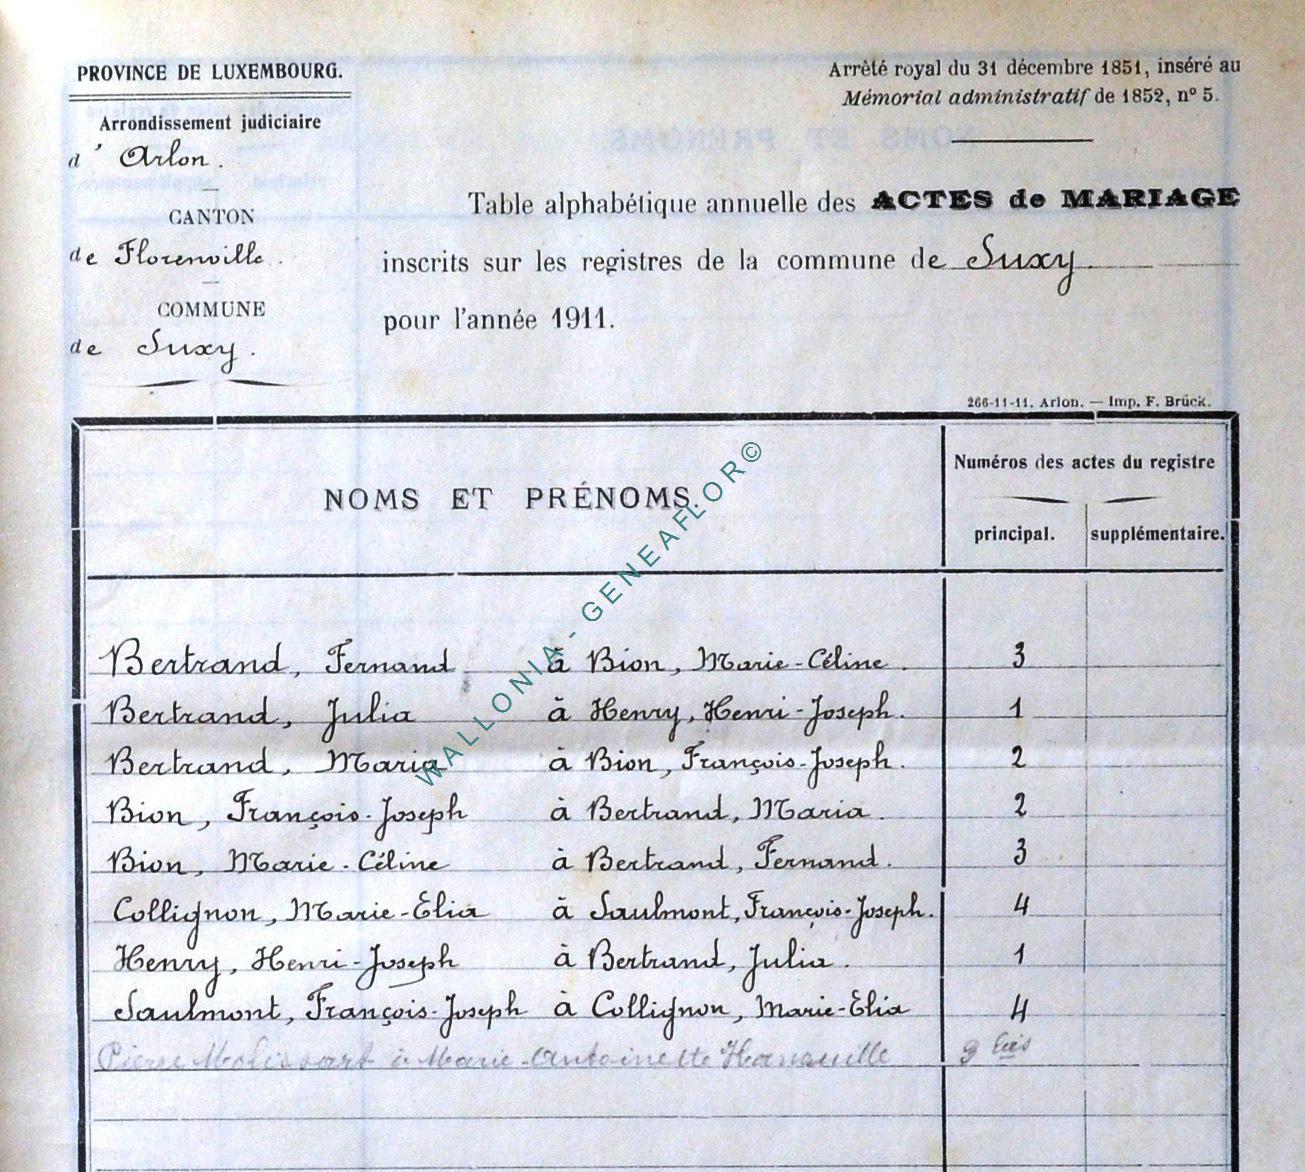 PROVINCE DE LUXEMBOURG.
Arrondissement judiciaire
d' Arlon.
CANTON
de Florenville.
COMMUNE
de Suxy.
Arrêté royal du 31 décembre 1851, inséré au
Mémorial administratif de 1852, n° 5.
Table alphabétique annuelle des ACTES de MARIAGE
inscrits sur les registres de la commune de Suxy.
pour l'année 1911.
266-11-11. Arlon. — Imp. F. Brück.
NOMS ET PRÉNOMS.
Numéros des actes du registre
principal. supplémentaire.
Bertrand, Fernand à Bion, Marie-Céline. 3
Bertrand, Julia à Henry, Henri-Joseph. 1
Bertrand, Maria à Bion, François-Joseph. 2
Bion, François-Joseph à Bertrand, Maria. 2
Bion, Marie-Céline à Bertrand, Fernand. 3
Collignon, Marie-Elia à Saulmont, François-Joseph. 4
Henry, Henri-Joseph à Bertrand, Julia. 1
Saulmont, François-Joseph à Collignon, Marie-Elia 4
Pierre à Marie-Antoinette bis
WALLONIA - GENEAFLOR©